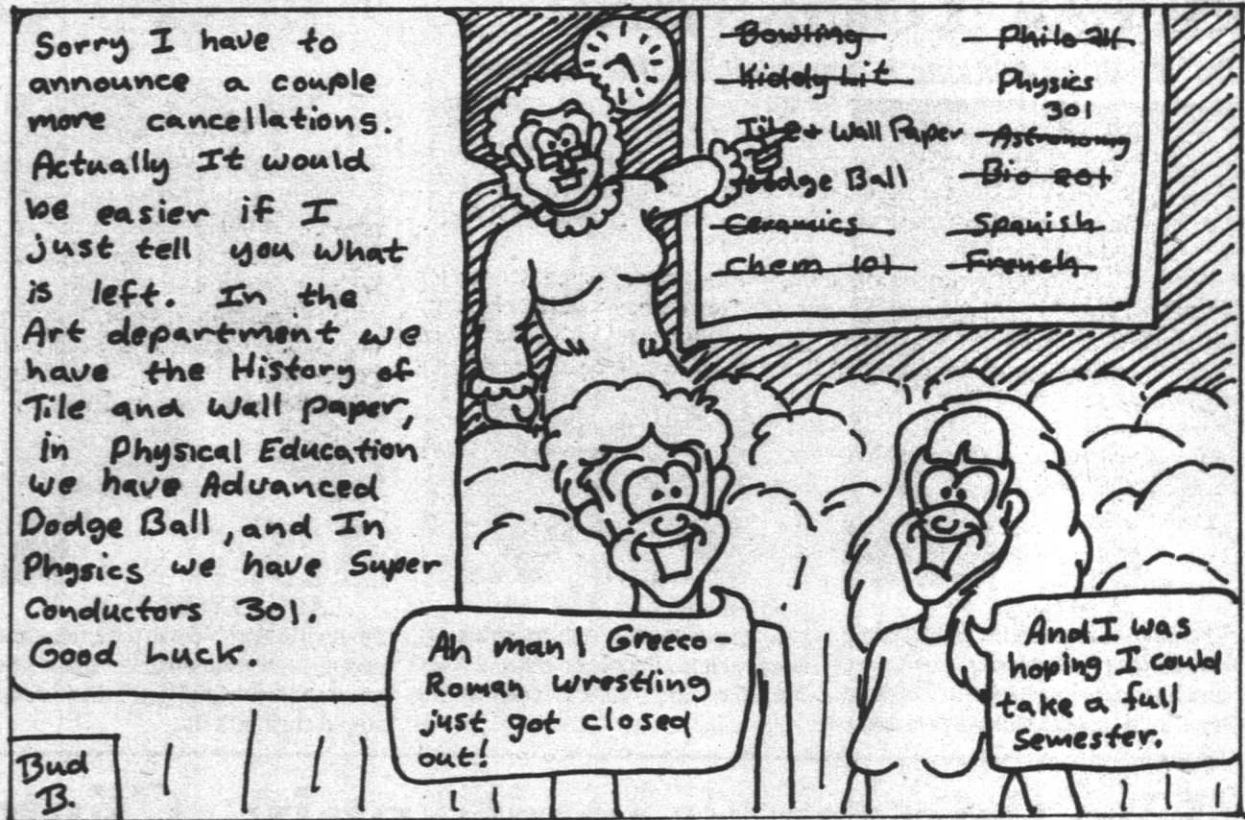 Sorry I have to
announce a couple
more cancellations.
Actually It would
be easier if I
just tell you what
is left. In the
Art department we
have the History of
Tile and Wall Paper,
in Physical Education
we have Advanced
Dodge Ball, and In
Physics we have Super
Conductors 301.
Good Luck.
Bowling
Kiddy Lit
Tile + Wall Paper
Dodge Ball
Ceramics
Chem 101
Philo 211
Physics
301
Astronomy
Bio 201
Spanish
French
Ah man! Greeco-
Roman wrestling
just got closed
out!
And I was
hoping I could
take a full
semester.
Bud
B.